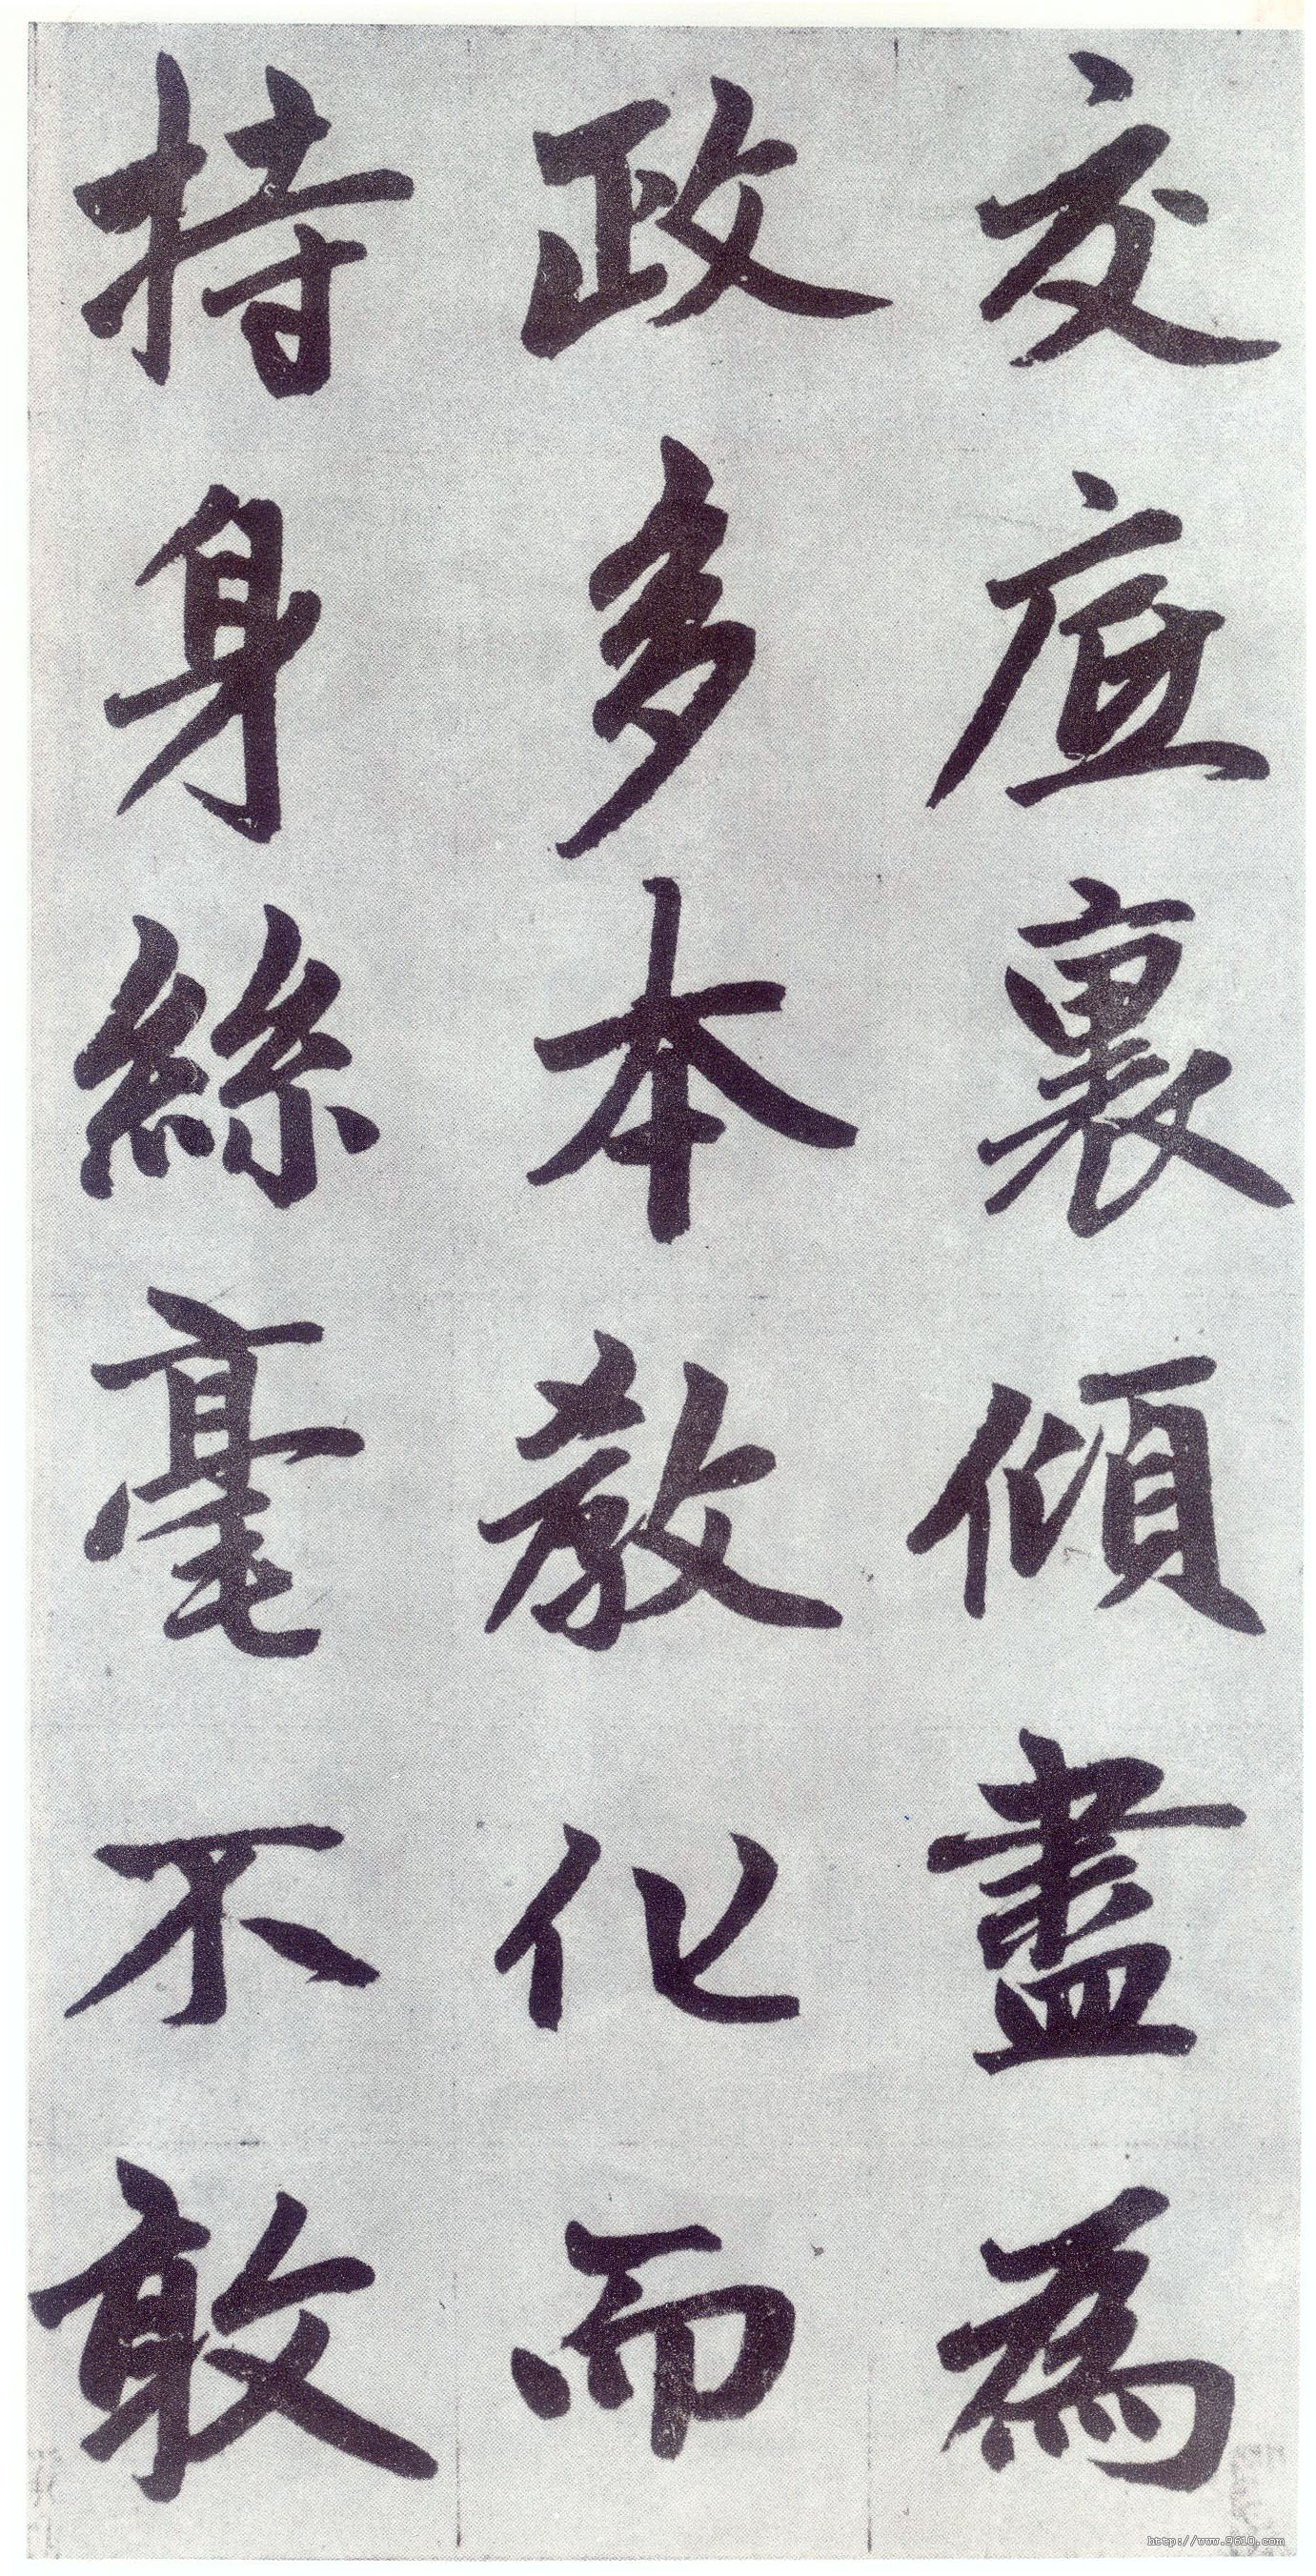 交底裏傾盡為
政多本教化而
持身絲毫不敢
http://www.9610.com